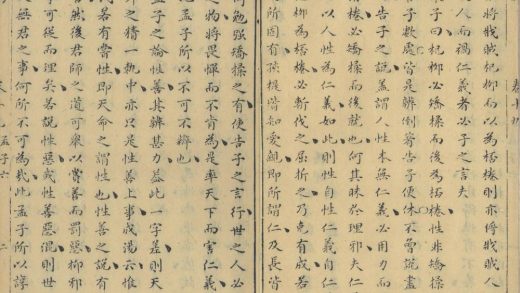 卷十九
將戕賊杞柳而以為桮棬則亦將戕賊人
人而禍仁義者必子之言夫
子曰杞柳必矯揉而後為桮棬性非矯揉
子數處皆是辨倒著告子便休不曾說盡
告子之說蓋謂人性本無仁義必用力而
桮棬必矯揉而後就也何其昧於理邪夫仁
以人性為仁義如此則性自性仁義自仁
柳為桮棬必斬伐之屈折之乃克有成若
所固有孩提皆知愛親即所謂仁及長皆
何勉强矯揉之有使告子之言行世之人必
之物將畏憚而不肯為是率天下而害仁義
孟子所以不可不辨也
孟子之論性善其辨甚力蓋此一字是則天
之精一執中亦只是性善上事成湯云惟
若有常性即天命之謂性也性善之說有
然後君師之道可舉以賞善而罰惡抑邪
事可從而理矣若說性惡或性善惡混則世
無君之事何所不可為哉此孟子所以諄
孟子六
二